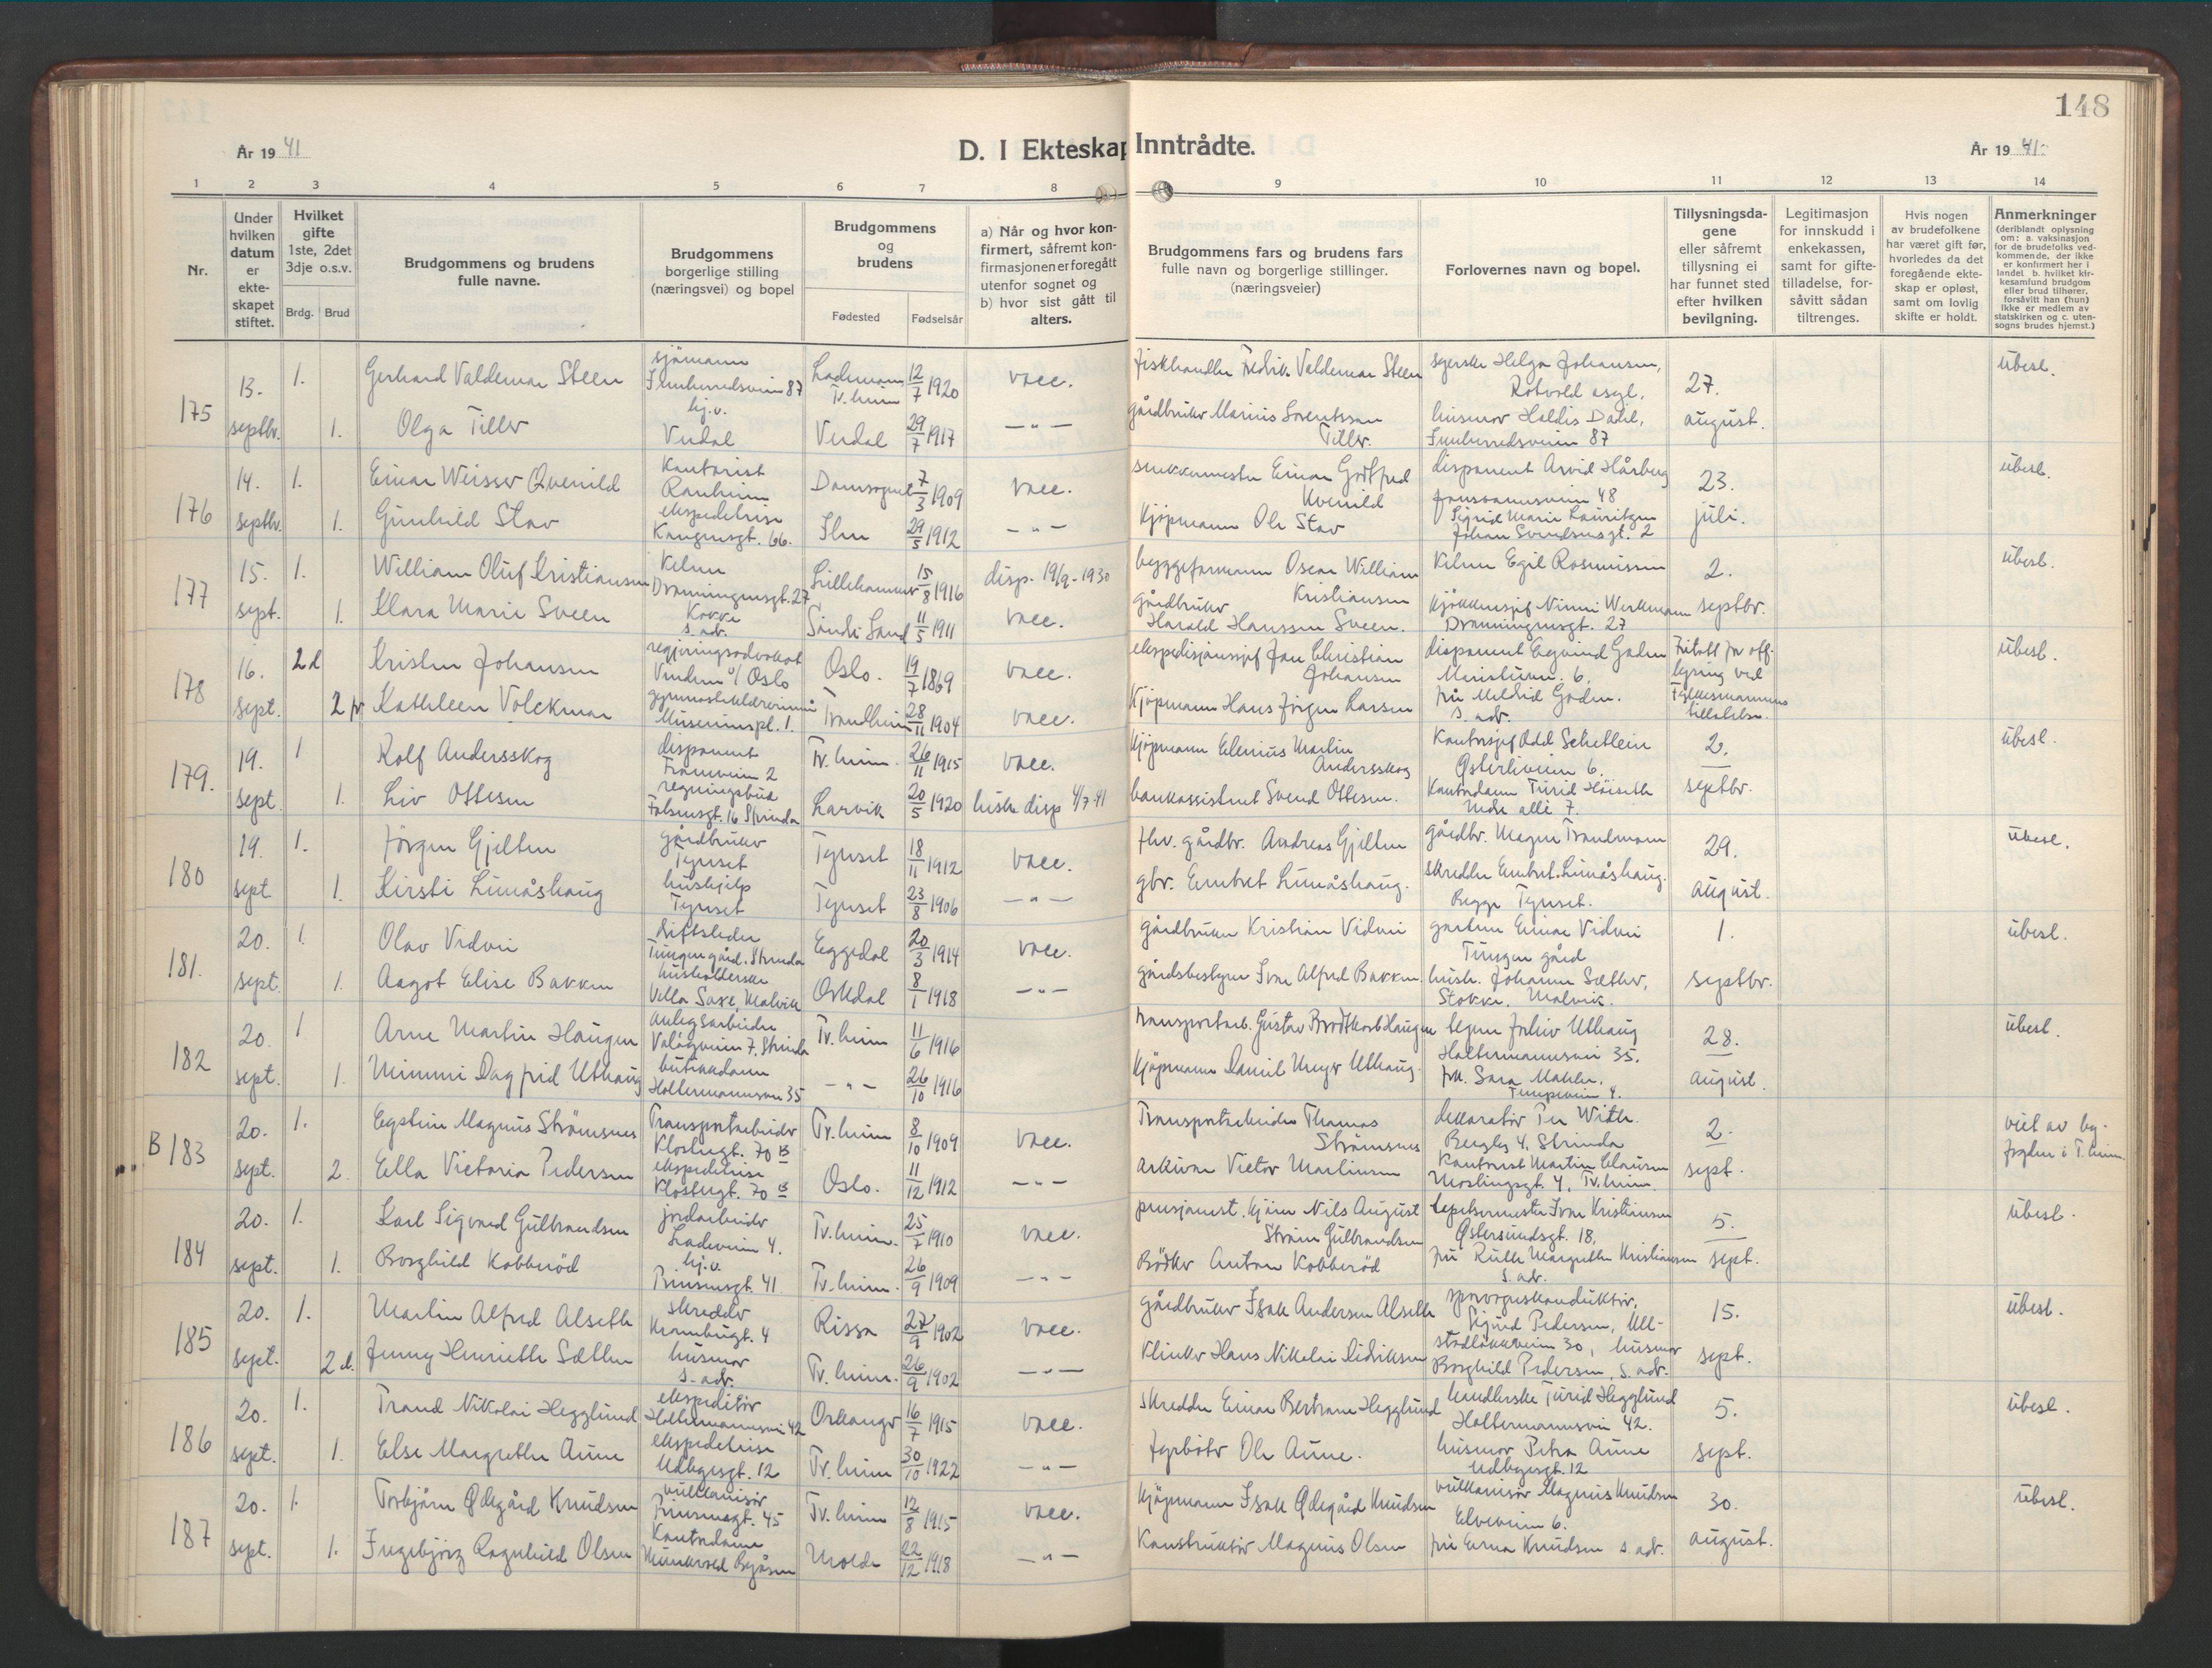 148
År 19 41
D. I Ekteskap Inntrådte.
År 19 41.
1 2 3 4 5 6 7 8 9 10 11 12 13 14
Nr.
Under hvilken datum er ekteskapet stiftet.
Hvilket gifte 1ste, 2det 3dje o.s.v.
Brdg. Brud
Brudgommens og brudens fulle navne.
Brudgommens borgerlige stilling (næringsvei) og bopel
Brudgommens og brudens
Fødested
Fødselsår
a) Når og hvor konfirmert, såfremt konfirmasjonen er foregått utenfor sognet og b) hvor sist gått til alters.
Brudgommens fars og brudens fars fulle navn og borgerlige stillinger. (næringsveier)
Forlovernes navn og bopel.
Tillysningsdagene eller såfremt tillysning ei har funnet sted efter hvilken bevilgning.
Legitimasjon for innskudd i enkekassen, samt for giftetilladelse, forsåvitt sådan tiltrenges.
Hvis nogen av brudefolkene har været gift før, hvorledes da det foregående ekteskap er opløst, samt om lovlig skifte er holdt.
Anmerkninger (deriblandt oplysning om: a. vaksinasjon for de brudefolks vedkommende, der ikke er konfirmert her i landet b. hvilket kirkesamlund brudgom eller brud tilhører, forsåvitt han (hun) ikke er medlem av statskirken og c. utensogns brudes hjemst.)
175 13. 1. Gerhard Valdemar Steen sjömann Innherredsveien 87 Lademoen Tr.heim 12/7 1920 vacc. fiskhandler Fredrik Valdemar Steen syerske Helga Johansen, Rotvold asyl. 27. ubesl.
septbr. 1. Olga Tiller hj.v. Verdal Verdal 29/7 1917 — " — gårdbruker Marius Lorentssen Tiller. husmor Haldis Dahl, Innherredsveien 87 august.
176 14. 1. Einar Weisser Quenild Kontorist Ranheim Domsognet 7/3 1909 vacc. Einar Gotfred Kvenild disponent Arvid Hårberg 48 23. ubesl.
septbr. 1. Gunhild Stav ekspeditrise Kongensgt. 66. Ilen 29/5 1912 — " — Kjöpmann Ole Stav Sigrid Marie Lauritzen Johan Svendsensgt. 2 juli.
177 15. 1. William Oluf Kristiansen Kelner Dronningensgt. 27 Lillehammer 15/8 1916 disp. 19/9 - 1930 byggeformann Oscar William Kristiansen Kelner Egil Rasmussen 2. ubesl.
sept. 1. Klara Marie Sveen Kokke s. adr. Söndre Land 11/5 1911 vacc. gårdbruker Harald Hanssen Sveen. Kjökkensjef Ninni Werkmann Dronningensgt. 27 septbr.
178 16. 2 d Kristen Johansen regjeringsadvokat Vinderen v/ Oslo Oslo. 19/7 1869 vacc. ekspedisjonssjef Jan Christian Johansen disponent Eyvind Goden 6. Fritatt for off. lysning ved Fylkesmannens tillatelse. ubesl.
sept. 2 fr Kathleen Volckmar Museumspl. 1. Trondheim 28/11 1904 vacc. Kjöpmann Hans Jörgen Larsen fru Goden. s. adr.
179. 19. 1 Rolf Andersskog disponent Framveien 2 Tr.heim. 26/11 1915 vacc. Kjöpmann Elenius Martin Andersskog Kontorsjef Odd Schetlein Österliveien 6. 2. ubesl.
sept. 1. Liv Ottesen 16 Strinda Larvik 20/5 1920 biskr disp 4/7-41 bankassistent Svend Ottesen. Kontordame Turid Höiseth allé 7. septbr.
180 19. 1. Jörgen Gjelten gårdbruker Tynset Tynset 18/11 1912 vacc. fhv. gårdbr. Andreas Gjelten gårdbr. Magne Trondmoen 29. ubesl.
sept 1. Kirsti Limåshaug hushjelp Tynset Tynset 23/8 1906 — " — gbr. Embret Limåshaug. skredder Embret Limåshaug. Begge Tynset. august.
181. 20. 1. Olav Vidvei driftsleder Tungen gård. Strinda Eggedal 20/3 1914 vacc. gårdbruker Kristian Vidvei gartner Einar Vidvei Tungen gård 1. ubesl.
sept. 1. Aagot Elise Bakken husholderske Villa Saxe, Malvik Orkdal 8/1 1918 — " — gårdsbestyrer Ivar Alfred Bakken. hush. Johanne Sæther, Stokke, Malvik. septbr.
182 20. 1 Arne Martin Haugen anlegsarbeider 7. Strinda Tr.heim 11/6 1916 transportarb. Gustav Brodtkorb Haugen Uthaug Holtermannsvei 35. 28. ubesl.
sept. 1. Mimmi Dagfrid Uthaug butikkdame Holtermannsvei 35 — " — 26/10 1916 Kjöpmann Daniel Meyer Uthaug. frk. Sara Mahler. Tempeveien 4. august.
B 183 20. 1. Eystein Magnus Strömsnes Transportarbeider Klostergt. 70 B Tr.heim 8/10 1909 vacc. Transportarbeider Thomas Strömsnes dekoratör Per With. Bergly 4, Strinda 2. viet av byfogden i T.heim
sept. 2 Ella Victoria Pedersen ekspeditrise Klostergt. 70 B Oslo. 11/12 1912 — " — arkivar Victor Martinsen Kontorist Martin Clausen 4, Tr.heim. sept.
184 20. 1. Karl Sigvard Gulbrandsen jordarbeider Ladeveien 4. Tr.heim. 25/7 1910 vacc. pensjonert. Nils August Ström Gulbrandsen tapetsermester Ivar Kristiansen Östersundsgt. 18. 5. ubesl.
sept. 1. Borghild Kobberöd hj.v. Prinsensgt. 41 Tr.heim. 26/9 1909 — " — Bödker Anton Kobberöd fru Ruth Margrethe Kristiansen s. adr. sept.
185 20. 1. Martin Alfred Alseth skredder Krambugt. 4 Rissa 27/9 1902 vacc. gårdbruker Isak Andersen Alseth sporvognskonduktör, Sigurd Pedersen, 15. ubesl.
sept. 2 d. Jenny Henriette Sæther husmor s. adr. Tr.heim. 26/9 1902 — " — Klinker Hans Nikolai Didriksen 30, husmor Borghild Pedersen, s. adr. sept.
186 20. 1. Trond Nikolai Hegglund ekspeditör Holtermannsvei 42 Orkanger 16/7 1915 vacc. Skredder Einar Bertrane Hegglund Turid Hegglund Holtermannsvei 42. 5. ubesl.
sept. 1. Else Margrethe Aune ekspeditrise Udbyesgt. 12 Tr.heim 30/10 1922 — " — fyrböter Ole Aune. husmor Petra Aune Udbyesgt. 12 sept.
187 20. 1. Torbjörn Ödegård Knudsen vulkanisör Prinsensgt. 45 Tr.heim 12/8 1915 vacc. Kjöpmann Isak Ödegård Knudsen vulkanisör Magnus Knudsen Elveveien 6. 30. ubesl.
sept. 1. Ingebjörg Ragnhild Olsen Kontordame Byåsen Molde 22/12 1918 — " — Konstruktör Magnus Olsen fru Erna Knudsen s. adr. august.